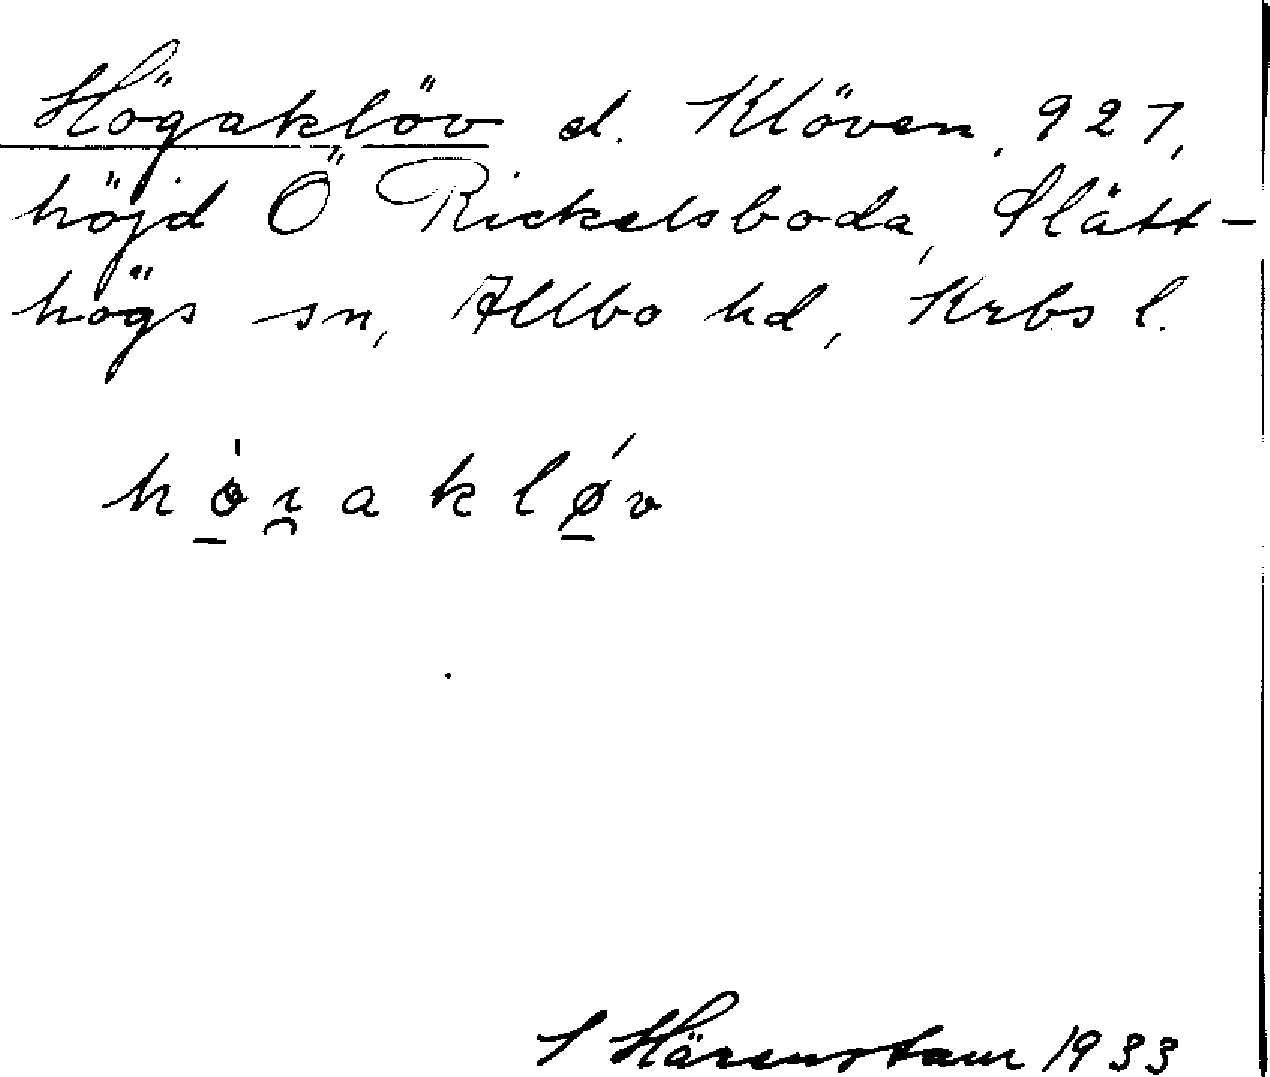 Högaklöv el. Klöven, 927,
höjd Ö Rickelsboda, Slätt-
högs sn, Allbo hd, Krbs l.
S Härenstam 1933